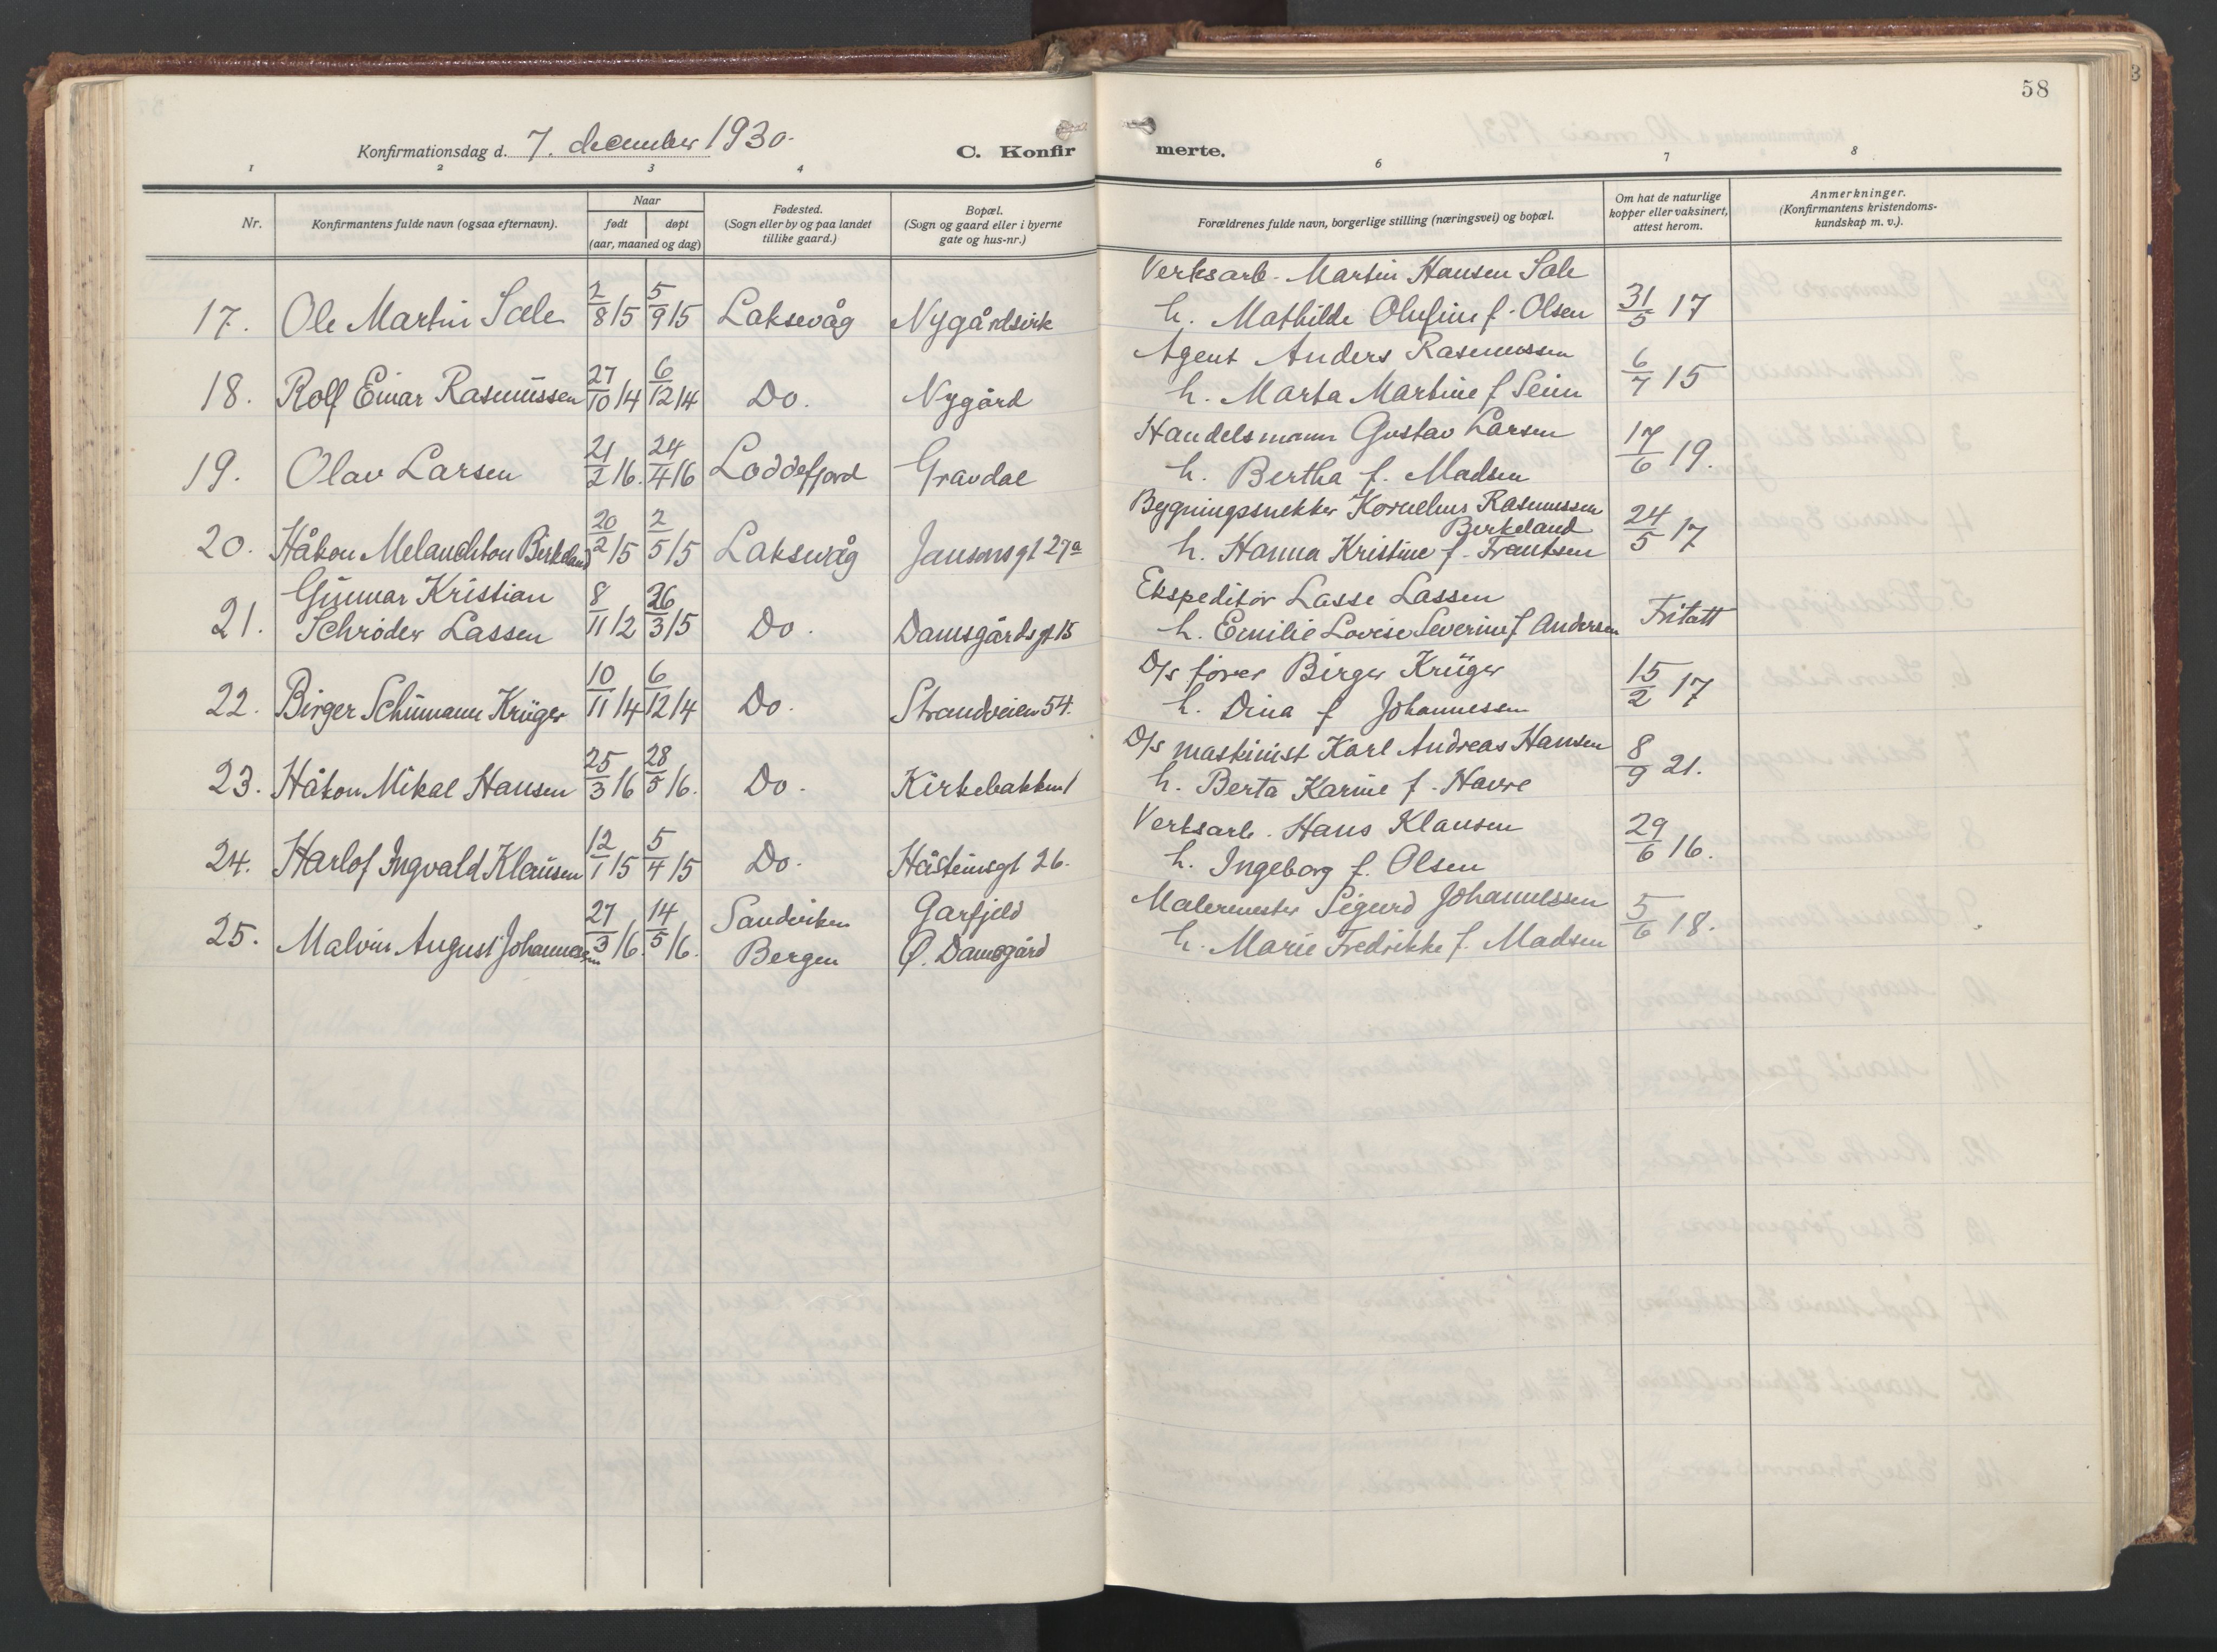 58
Konfirmationsdag d. 7. december 1930.
C. Konfirmerte.
1 2 3 4 6 7 8
Nr. | Konfirmantens fulde navn (ogsaa efternavn). | Naar født døpt (aar, maaned og dag) | Fødested. (Sogn eller by og paa landet tillike gaard.) | Bopæl. (Sogn og gaard eller i byerne gate og hus-nr.) | Forældrenes fulde navn, borgerlige stilling (næringsvei) og bopæl. | Om hat de naturlige kopper eller vaksinert, attest herom. | Anmerkninger. (Konfirmantens kristendoms-kundskap m. v.).
Verksarb. Martin Hansen Sæle
17. Ole Martin Sæle 2/8 15 5/9 15 Laksevåg Nygårdsvik h. Mathilde Olufine f. Olsen 31/5 17
Agent Anders Rasmussen
18. Rolf Einar Rasmussen 27/10 14 6/12 14 Do. Nygård h. Marta Martine f Seim 6/7 15
Handelsmann Gustav Larsen
19. Olav Larsen 21/2 16. 24/4 16 Loddefjord Gravdal h. Bertha f. Madsen 17/6 19.
Bygningssnekker Kornelius Rasmussen
Birkeland
20. Håkon Melanchton Birkeland 20/2 15 2/5 15 Laksevåg Jansonsgt 27a h. Hanna Kristine f. Frantsen 24/5 17
Gunnar Kristian Ekspeditør Lasse Lassen
21. Schrøder Lassen 8/11 12 26/3 15 Do. Damsgårdsgt 15 h. Emilie Lovise Severine f Andersen Fritatt
D/s fører Birger Krüger
22. Birger Schumann Krüger 10/11 14 6/12 14 Do. Strandveien 54. h. Dina f Johannessen 15/2 17
D/s maskinist Karl Andreas Hansen
23. Håkon Mikal Hansen 25/3 16 28/5 16. Do. Kirkebakken 1 h. Berta Karine f. Havre 8/9 21.
Verksarb. Hans Klausen
24. Harlof Ingvald Klausen 12/1 15 5/4 15 Do. Håsteinsgt 26. h. Ingeborg f. Olsen 29/6 16.
Sandviken Garfjeld Malermester Sigurd Johannessen
25. Malvin August Johannessen 27/3 16. 14/5 16. Bergen Ø. Damsgård h. Marie Fredrikke f. Madsen 5/6 18.